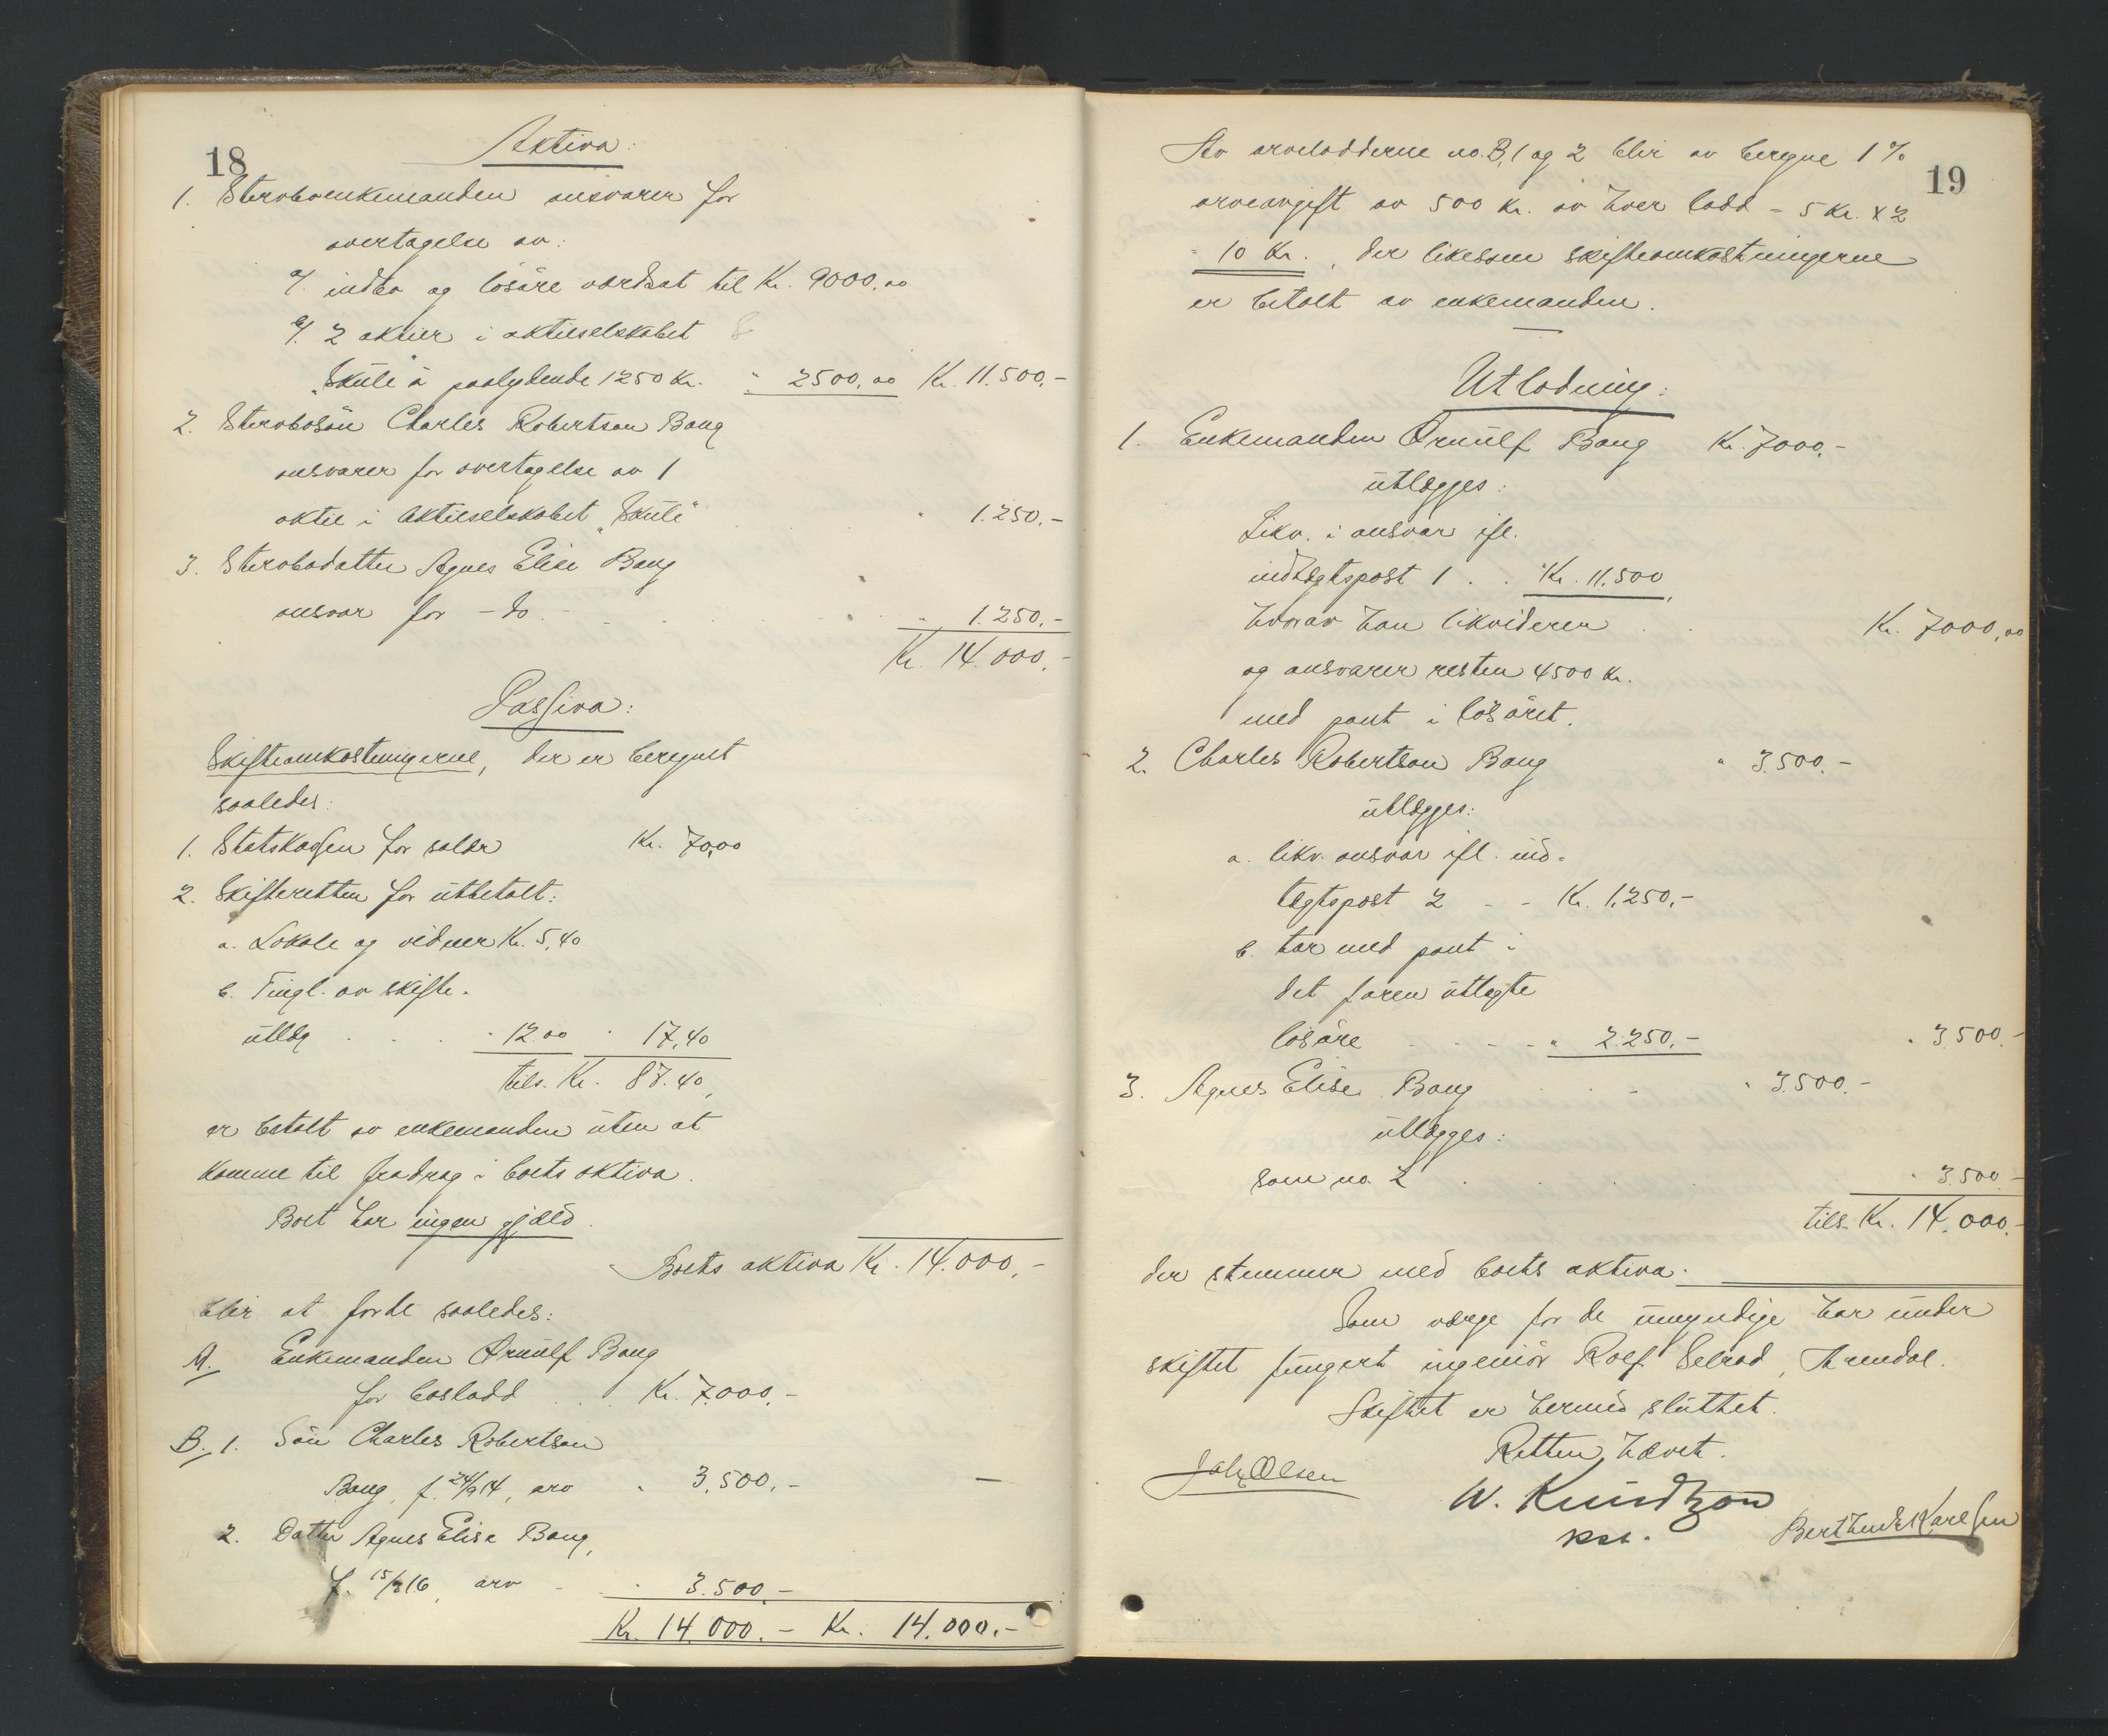 18
Aktiva:
1. Stervboenkemanden ansvarer for
overtagelse av:
a/. indbo og løsøre værdsat til Kr. 9000,00
b/. 2 aktier i aktieselskabet
"Skule" à paalydende 1250 Kr. " 2500,00 Kr. 11.500,-
2. Stervbosøn Charles Robertson Bang
ansvarer for overtagelse av 1
aktie i Aktieselskabet "Skule" . . . " 1.250,-
3. Stervbodatter Agnes Elise Bang
ansvar for - do - . . . " 1.250,-
Kr. 14.000,-
Passiva:
Skifteomkostningerne, der er beregnet
saaledes:
1. Statskassen for salær Kr. 70,00
2. Skifteretten for utbetalt:
a. Lokale og vidner Kr. 5,40
b. Tingl. av skifte-
utlæg . . . " 12.00 " 17,40
tils. Kr. 87.40,
er betalt av enkemanden uten at
komme til fradrag i boets aktiva.
Boet har ingen gjæld.
Boets aktiva Kr. 14.000,-
blir at fordele saaledes:
A. Enkemanden Ørnulf Bang
for boslodd . . . Kr. 7.000,-
B. 1. Søn Charles Robertson
Bang, f. 24/9 14, arv " 3.500,- -
2. Datter Agnes Elise Bang,
f. 15/8 16, arv - " 3.500,-
Kr. 14.000.- Kr. 14.000.-
19
Av arvelodderne no. B, 1 og 2 blir av beregne 1 %
arveavgift av 500 Kr. av hver lodd = 5 Kr. x 2
= 10 Kr., der likesom skifteomkostningerne
er betalt av enkemanden.
Utlodning:
1. Enkemanden Ørnulf Bang Kr. 7000,-
utlægges:
Likv. i ansvar ifl.
indtægtspost 1 . . Kr. 11.500,
hvorav han likviderer . . Kr. 7000,00
og ansvarer resten 4500 Kr.
med pant i løsøret.
2. Charles Robertson Bang " 3.500.-
utlægges:
a. likv. ansvar ifl. ind-
tægtspost 2 - - Kr. 1.250,-
b. har med pant i
det faren utlagte
løsøre - - - - " 2.250,- " 3.500.-
3. Agnes Elise Bang . - " 3.500.-
utlægges:
som no. 2 . . . . " 3.500.-
tils. Kr. 14.000.-
der stemmer med boets aktiva.
Som værge for de umyndige har under
skiftet fungert ingeniør Rolf Selrod, Arendal.
Skiftet er hermed sluttet.
Retten hævet.
Joh. Olsen
W. Knudtzon
kst.
Berthud Karlsen